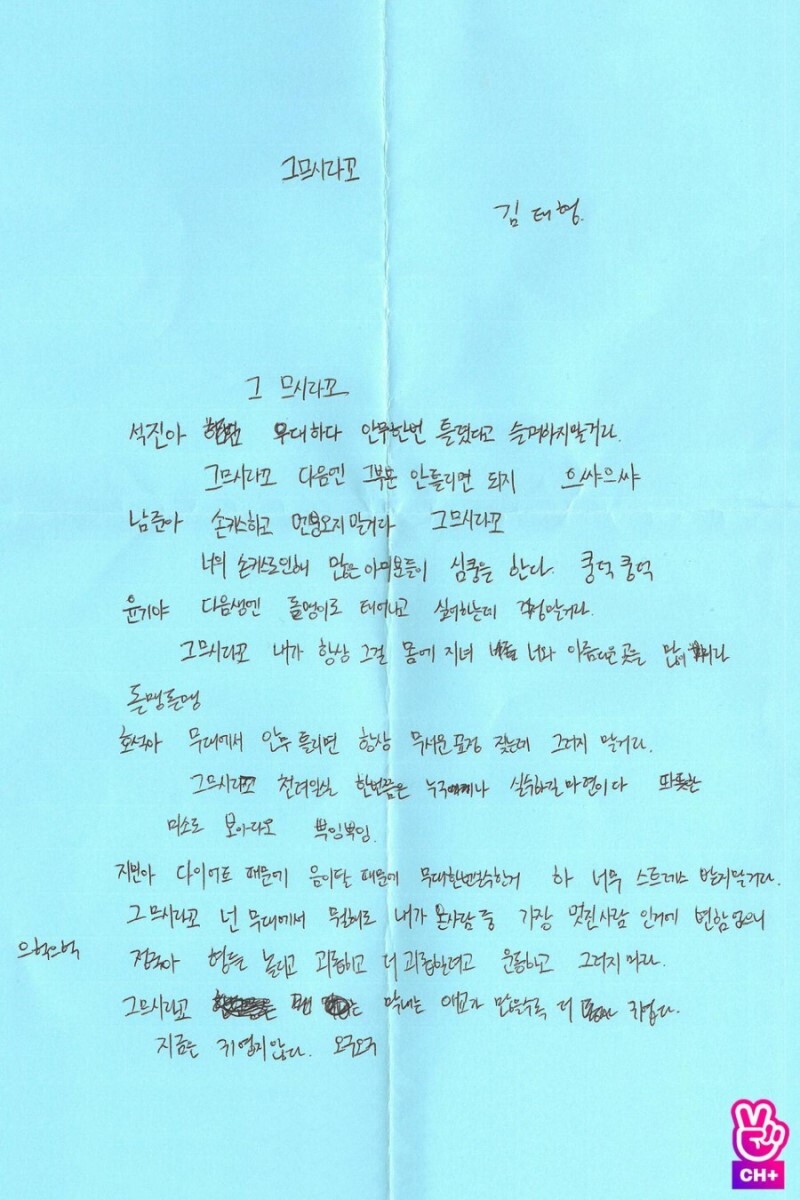 그므시라꼬
김태형.
그 므시라꼬
석진아 무대하다 안무한번 틀렸다고 슬퍼하지말거라.
그므시라꼬 다음엔 그부분 안틀리면 되지 으쌰으쌰
남준아 손키스하고 오지말거라 그므시라꼬
너의 손키스로인해 많은 아미분들이 심쿵을 한다. 쿵덕쿵덕
윤기야 다음생엔 돌멩이로 태어나고 싶어하는데 걱정말거라.
그므시라꼬 내가 항상 그걸 몸에 지녀 너와 아름다운 곳을 많이
돌맹돌맹
호석아 무대에서 안무 틀리면 항상 무서운 표정 짖는데 그러지 말거라.
그므시라꼬 천려일실 한번쯤은 누구에게나 실수하길 마련이다 따뜻한
미소로 보아라오 뿍잉뿍잉.
지민아 다이어트 때문에 음이탈 때문에 무대한번실수한거 하 너무 스트레스 받지말거라.
그므시라꼬 넌 무대에서 뭘해도 내가 본사람 중 가장 멋진사람 인거에 변함 없으니
으헉으헉
정국아 형들 놀리고 괴롭히고 더 괴롭힐려고 운동하고 그러지 마라.
그므시라꼬 막내는 애교가 많을수록 더 귀엽다.
지금은 귀엽지않다. 오구오구
CH+